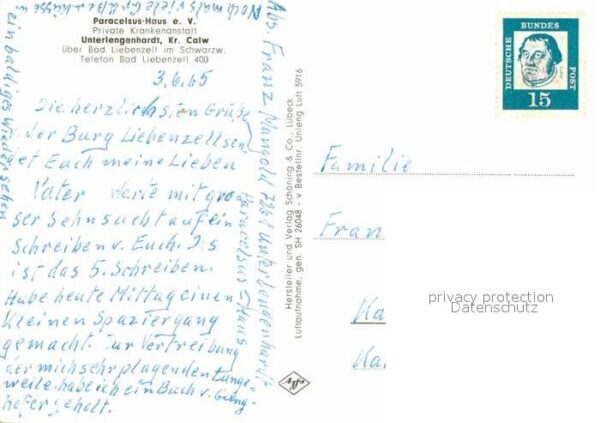 Paracelsus-Haus e. V.
Private Krankenanstalt
Unterlengenhardt, Kr. Calw
über Bad Liebenzell im Schwarzw.
Telefon Bad Liebenzell 400
3.6.65
Die herzlichsten Grüße
der Burg Liebenzell
Euch meine Lieben
Vater warte mit gros
ser Sehnsucht auf ein
Schreiben v. Euch. Is
ist das 5. Schreiben.
Habe heute Mittag einen
kleinen Spaziergang
gemacht. Zur Vertreibung
der mich sehr plagenden Lange-
weile habe ich ein Buch v.
hofer geholt.
Nochmals viele Grüße
ein baldiges Wiedersehen
Abs. Franz Mangold 7261 Unterlengenhardt
Paracelsus-Haus
Hersteller und Verlag Schöning & Co., Lübeck
Luftaufnahme, gen. SH 26048 - v Bestellnr. Unleng Luft 5916
Agfa
DEUTSCHE BUNDES POST
15
Familie
Fran
Ka
Ka
privacy protection
Datenschutz